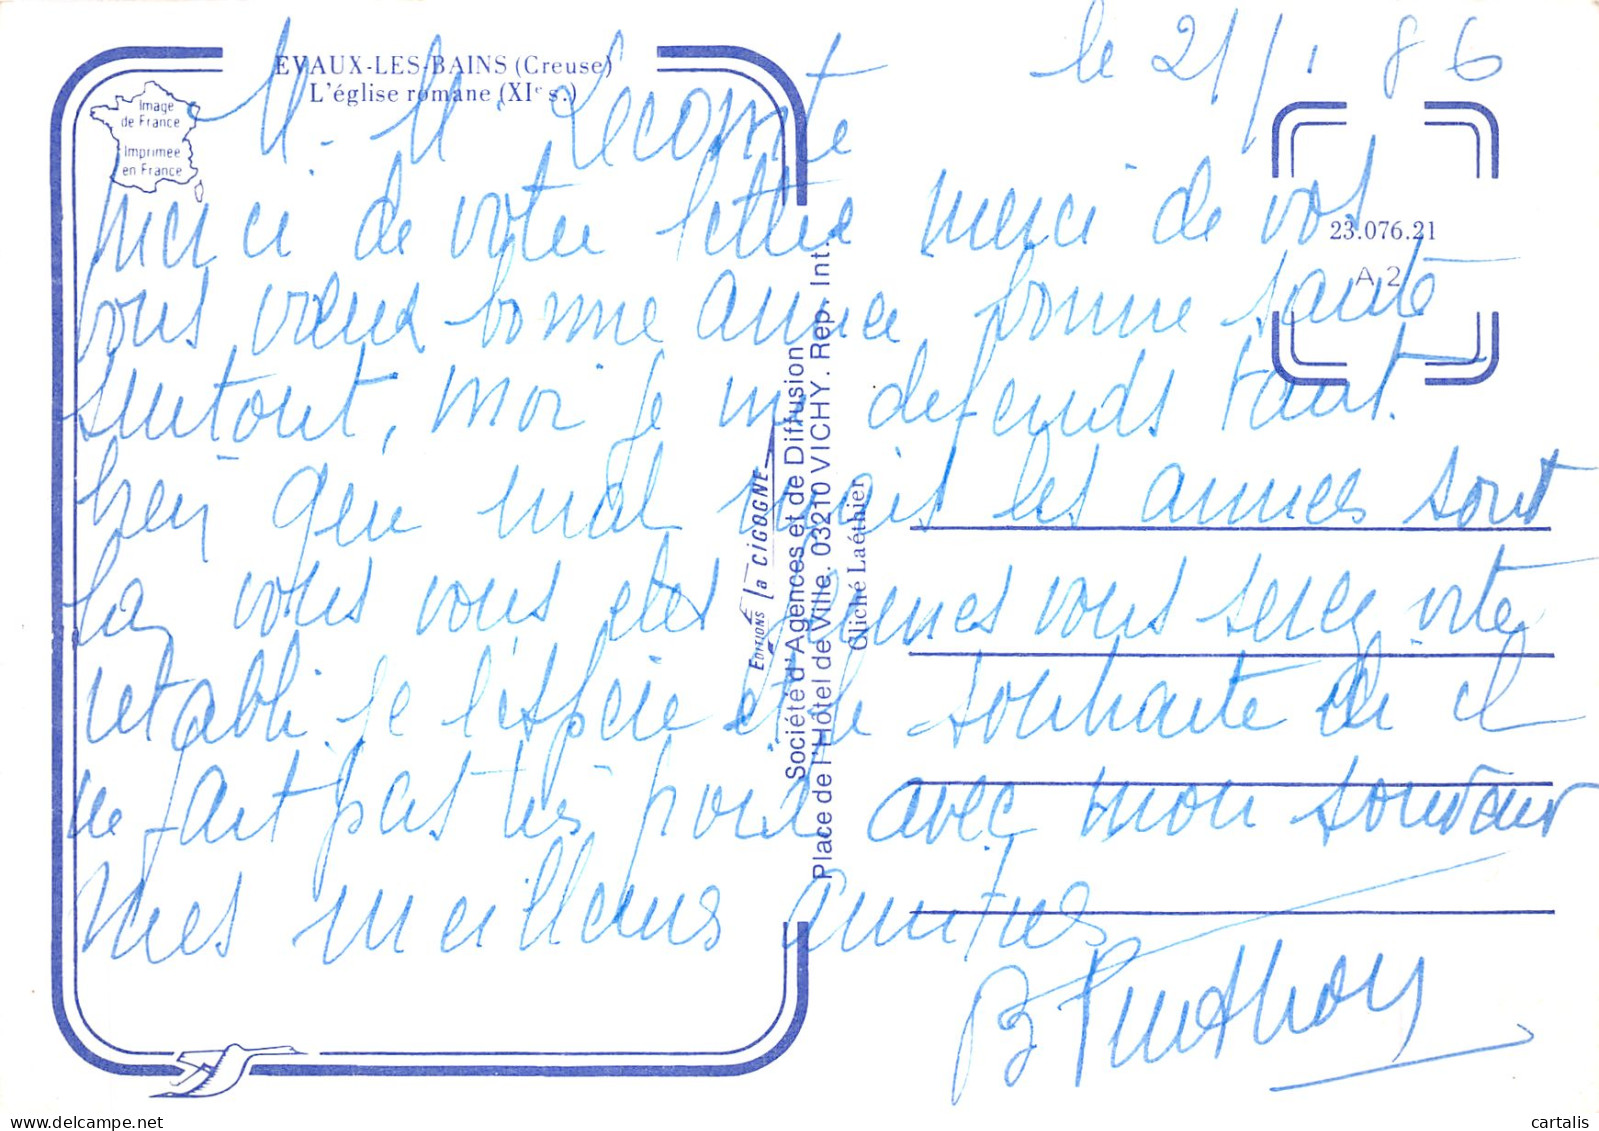 EVAUX-LES-BAINS (Creuse)
L'église romane (XIe s.)
Image
de France
Imprimée
en France
le 21/1 86
M. M Lecomte
merci de votre lettre merci de vos
bons vœux bonne année bonne santé
surtout, moi je me défends tant
bien que mal mais les années sont
là, vous vous etes jeunes vous serez vite
rétabli je l'espère et le souhaite ici il
ne fait pas très froid avec mon souvenir
mes meilleurs amitiés
B
23.076.21
A 2
EDITIONS la CIGOGNE
Société d'Agences et de Diffusion
Place de l'Hôtel de Ville. 03210 VICHY. Rep. Int.
Cliché Laéthier
cartalis